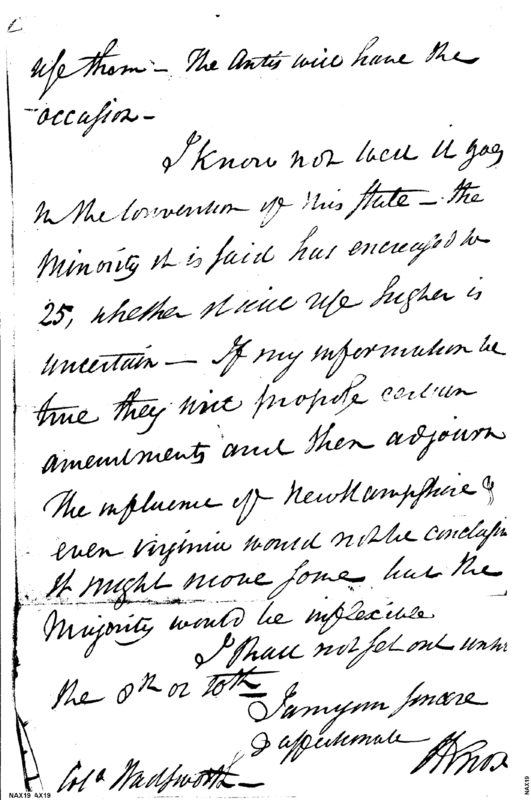 use them – The Antis will have the
occasion –
I know not well it goes
in the Convention of this State – the
Minority it is said has encreased to
25, whether it will rise higher is
uncertain – If my information be
true they will propose certain
amendments and then adjourn
The influence of New Hampshire &
even Virginia would not be conclusive
It might move some but the
Majority would be inflexible
I shall not set out until
the 8th or 10th
I am your sincere
& affectionate
HKnox
Colo Wadsworth –
NAX19 AX19
NAX19